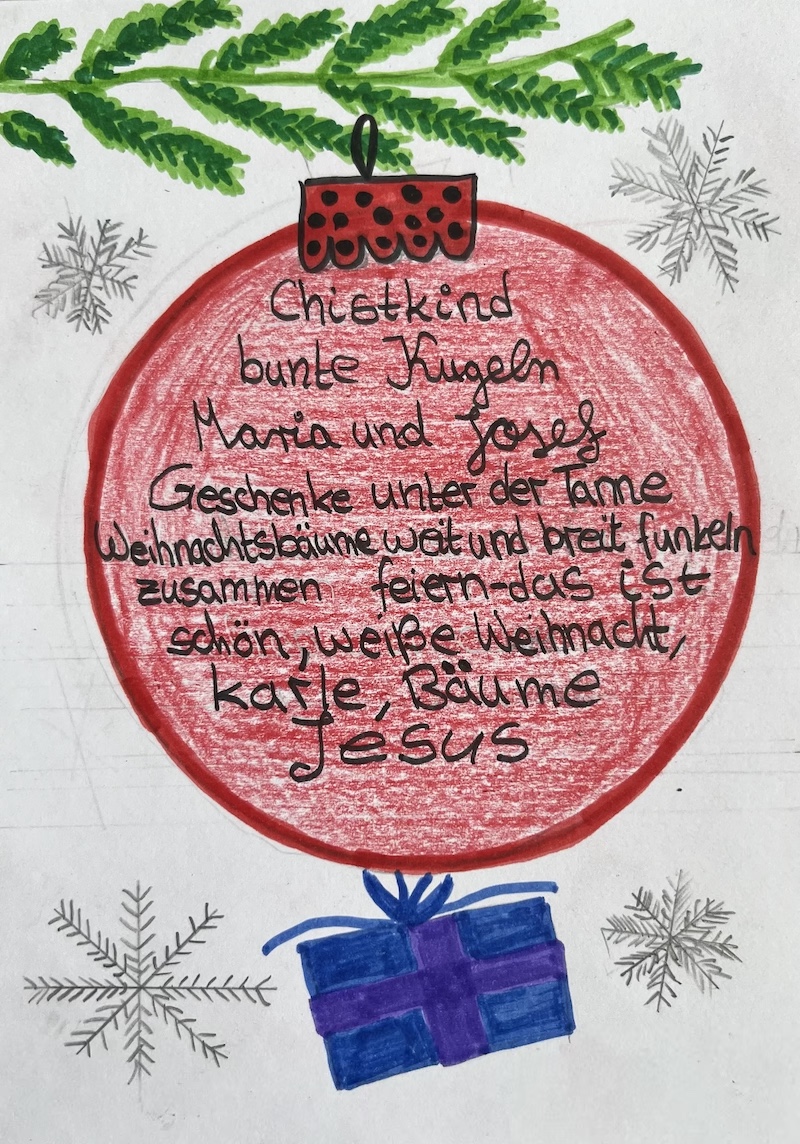 Chistkind
bunte Kugeln
Maria und Josef
Geschenke unter der Tanne
Weihnachtsbäume weit und breit funkeln
zusammen feiern-das ist
schön, weiße Weihnacht,
karle, Bäume
Jesus